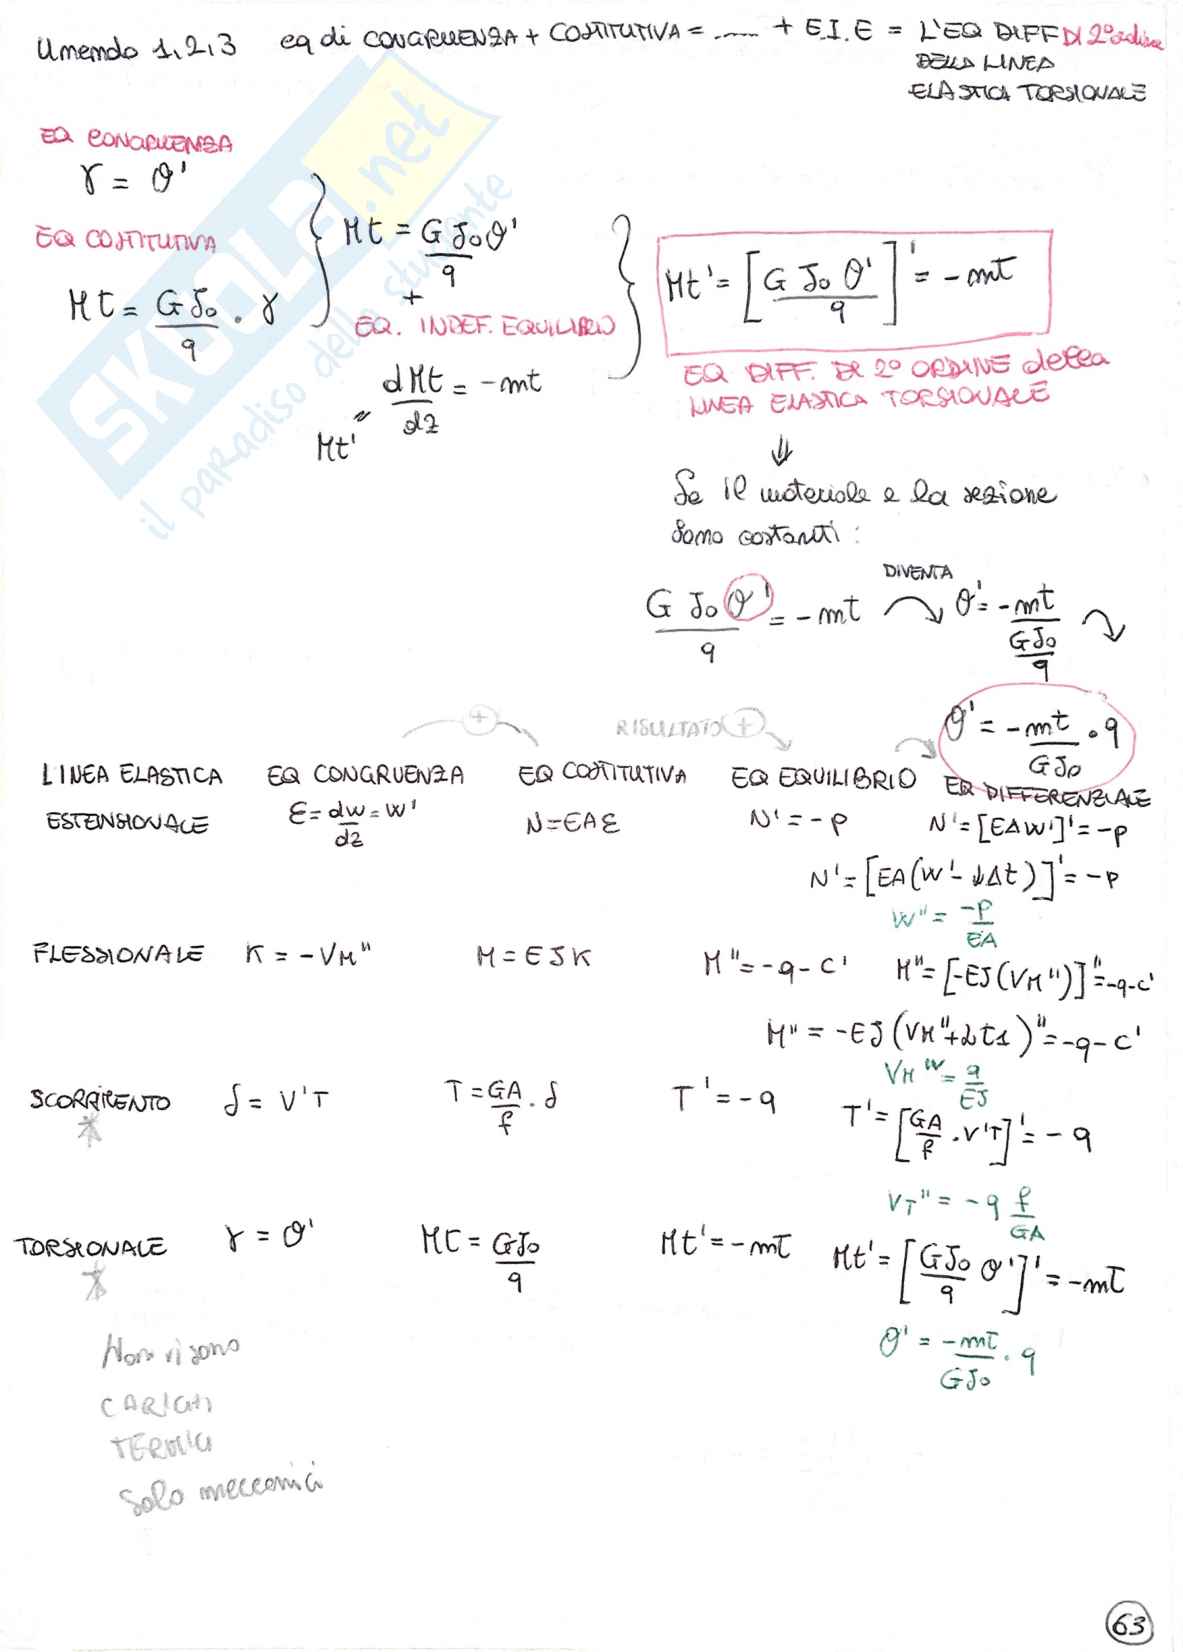 Unendo 1,2,3 eq di CONGRUENZA + COSTITUTIVA = ...... + E.I.E = L'EQ DIFF DI 2° ordine
DELLA LINEA
ELASTICA TORSIONALE
EQ CONGRUENZA
γ = θ'
EQ COSTITUTIVA
Mt = GJo/q . γ
Mt = GJoθ'/q
+
EQ. INDEF. EQUILIBRIO
dMt/dz = -mt
Mt'
Mt' = [G Jo θ'/q]' = -mt
EQ DIFF. DI 2° ORDINE della
LINEA ELASTICA TORSIONALE
⇓
Se il materiale e la sezione
sono costanti:
G Jo θ'/q = -mt DIVENTA θ' = -mt/(GJo/q)
θ' = -mt/GJo . q
+ RISULTATO +
LINEA ELASTICA EQ CONGRUENZA EQ COSTITUTIVA EQ EQUILIBRIO EQ DIFFERENZIALE
ESTENSIONALE ε = dw/dz = w' N = EAε N' = -p N' = [EAW']' = -p
N' = [EA(W' - αΔt)]' = -p
W'' = -p/EA
FLESSIONALE K = -VM'' M = EJK M'' = -q - c' M'' = [-EJ(VM'')]'' = -q-c'
M'' = -EJ(VM''+αt1)'' = -q-c'
VM^IV = q/EJ
SCORRIMENTO δ = V'T T = GA/f . δ T' = -q T' = [GA/f . V'T]' = -q
VT'' = -q f/GA
TORSIONALE γ = θ' Mt = GJo/q Mt' = -mt Mt' = [GJo/q θ']' = -mt
θ' = -mt/GJo . q
Non vi sono
CARICHI
TERMICI
Solo meccanici
63
SKUOLA.net
il paradiso dello studente